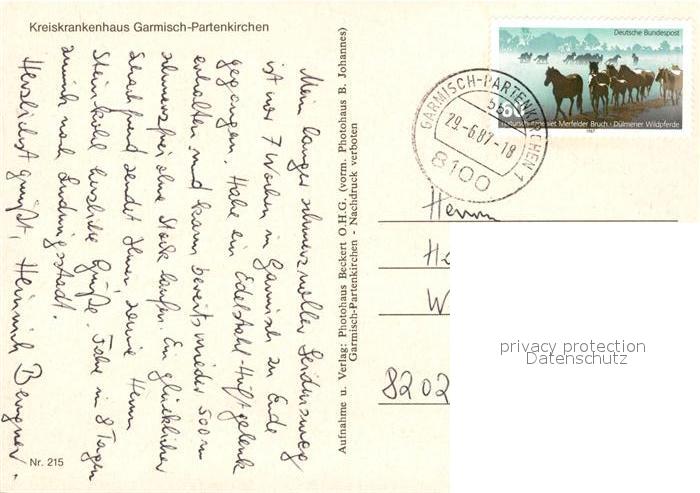 Kreiskrankenhaus Garmisch-Partenkirchen
Mein langer schmerzvoller Leidensweg
ist vor 7 Wochen in Garmisch zu Ende
gegangen. Habe ein Edelstahl-Hüftgelenk
erhalten und kann bereits wieder 500 m
schmerzfrei ohne Stock laufen. Ein glücklicher
sendet Ihnen sowie Herrn
Steinkohl herzliche Grüße. Fahre in 8 Tagen
zurück nach Ludwigsstadt.
Herzlichst grüßt, Heinrich
Nr. 215
Aufnahme u. Verlag: Photohaus Beckert O.H.G. (vorm. Photohaus B. Johannes)
Garmisch-Partenkirchen - Nachdruck verboten
Deutsche Bundespost
Naturschutzgebiet Merfelder Bruch · Dülmener Wildpferde
1987
GARMISCH-PARTENKIRCHEN 1
29.-6.87-18
8100
Herrn
He
W
8202
privacy protection
Datenschutz